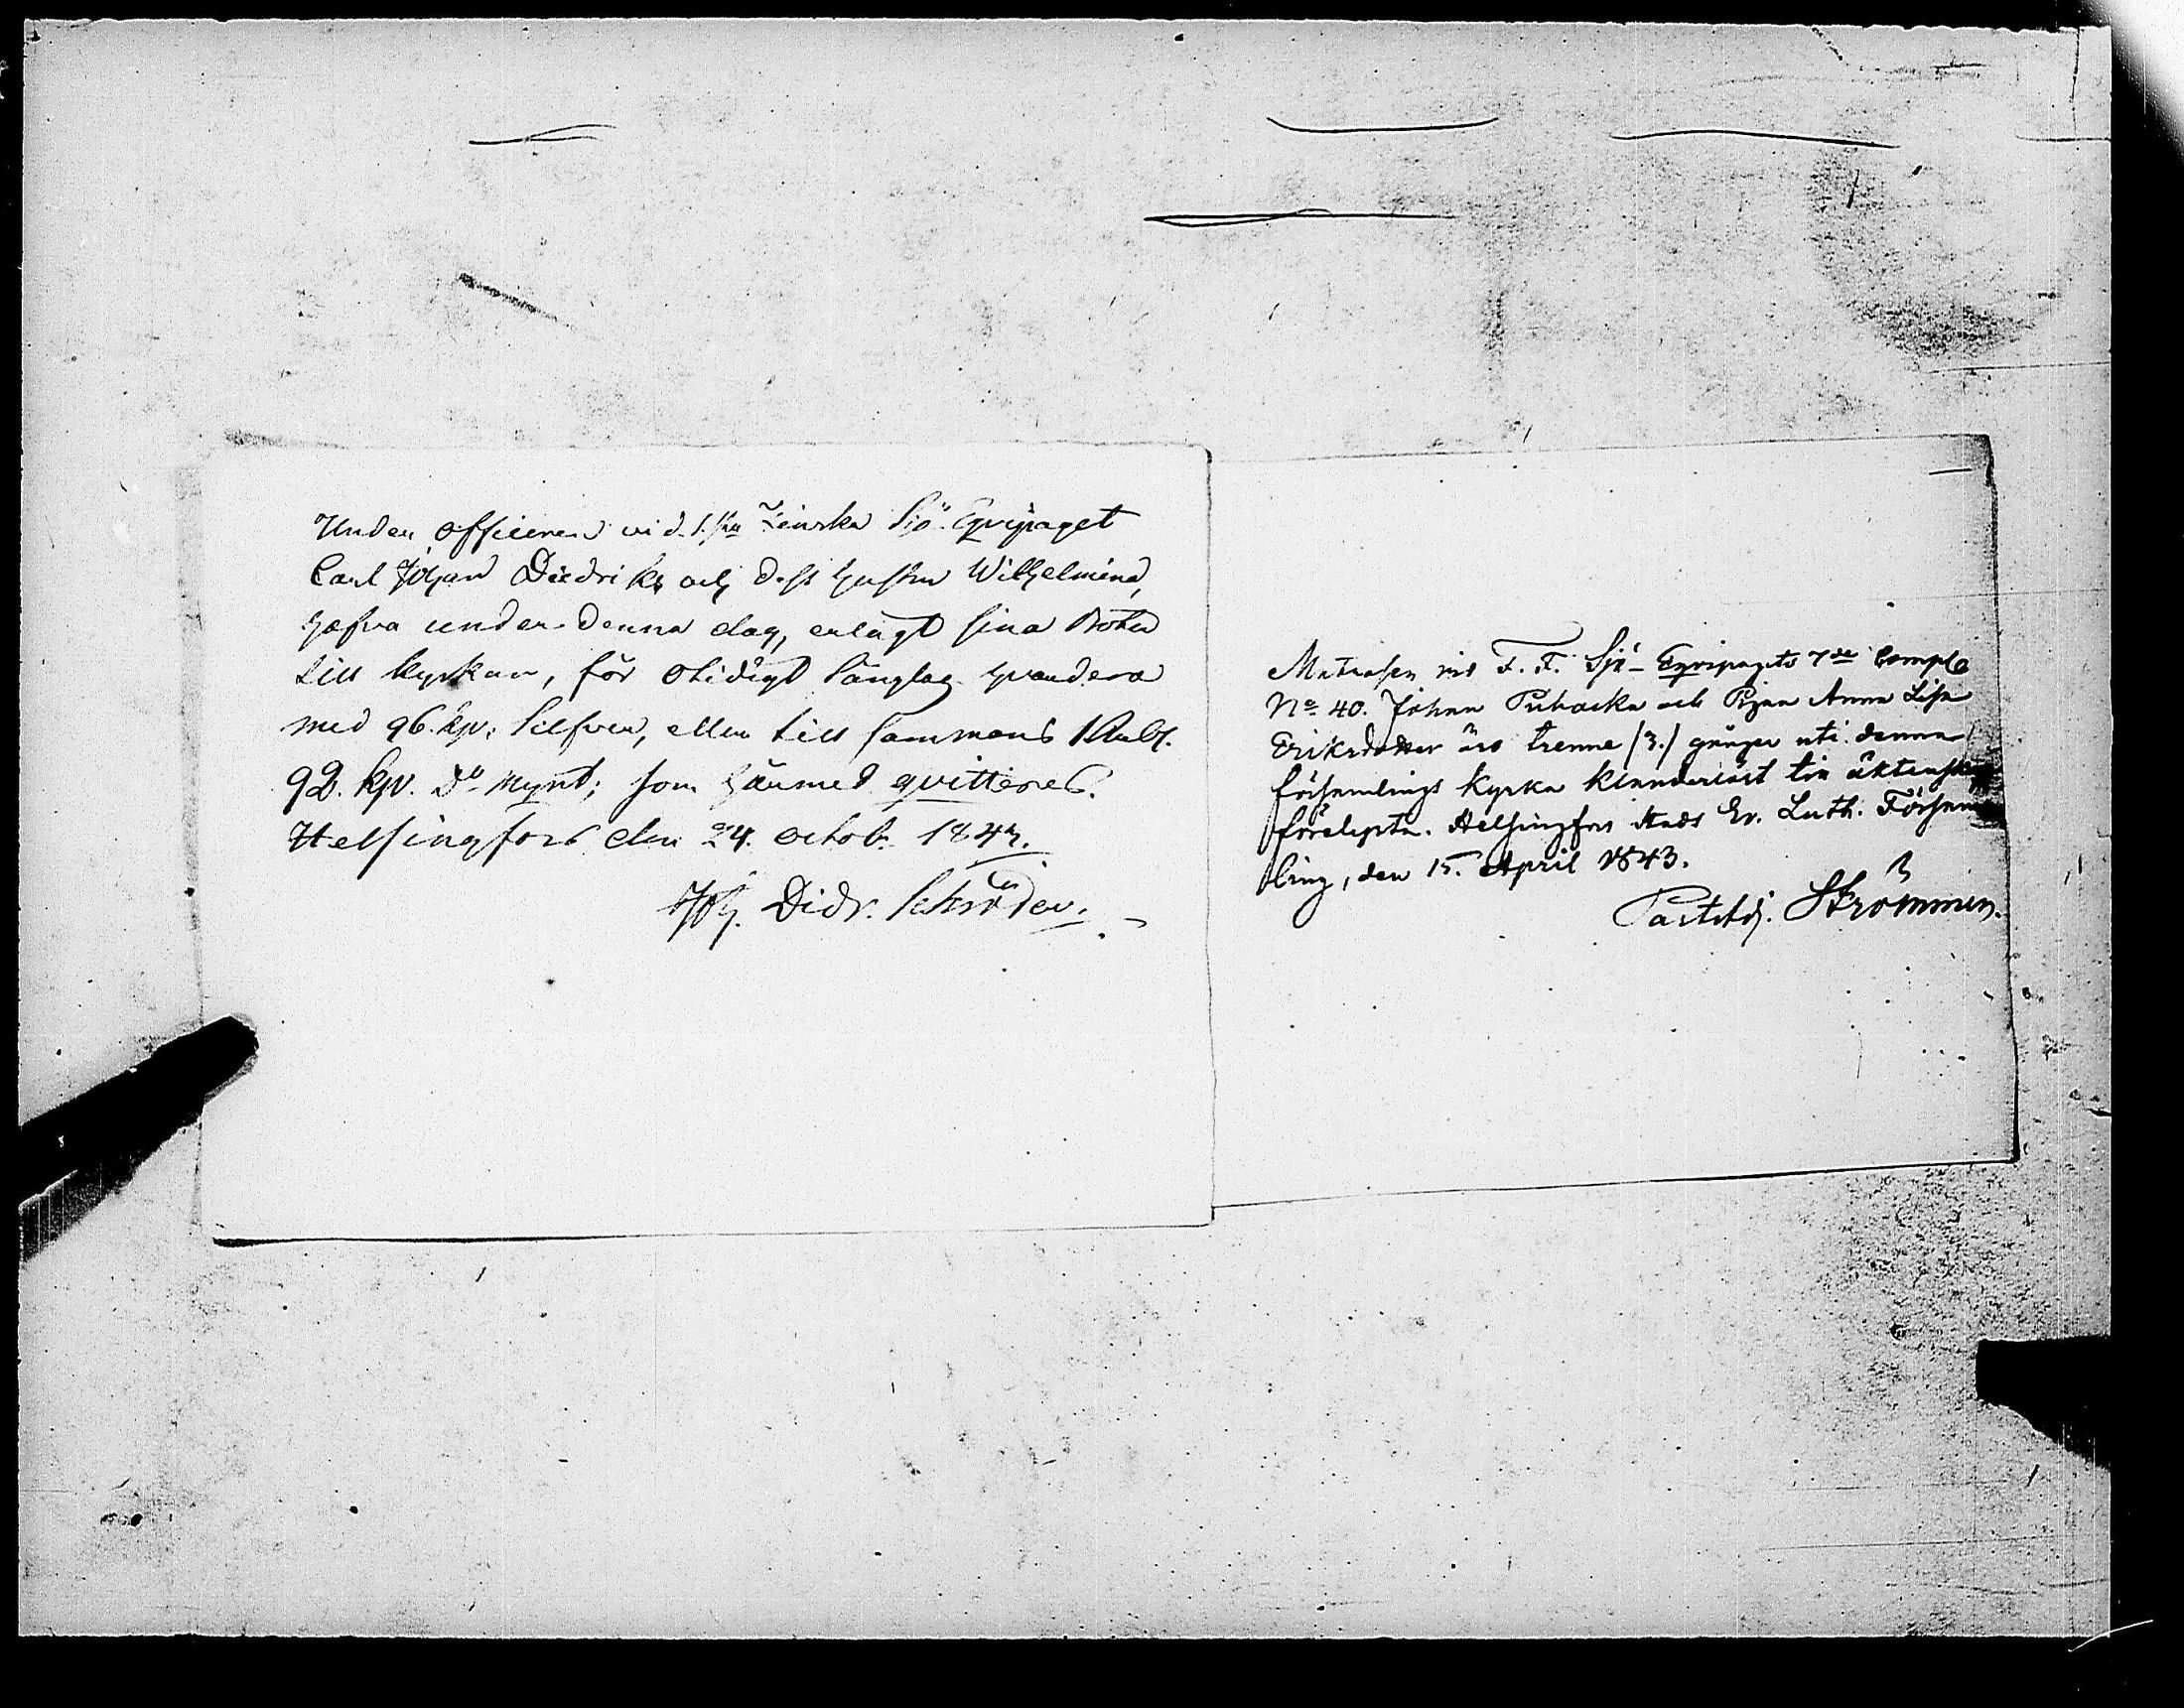 Under officeren vid 1sta Finska Sjö-Equipaget
Carl Johan Diedriks och dess hustru Wilhelmina,
hafva under denna dag, erlagt sina böter
till kyrkan, för otidigt sänglag hvardera
med 96. kop. Silfver, eller till sammans 1 Rub.
92. kop. do mynt; som härmed qvitteres.
Helsingfors den 24. octob. 1843.
Joh. Didr. Schröder.
Matrosen vid F. F. Sjö-Equipagets 7de Comp.
No 40. Johan Puhacka och Pigan Anna Lisa
Eriksdotter äro trenne /3./ gånger uti denna
församlings Kyrka kländerlöst till äktenskap
förelysta. Helsingfors stads Ev. Luth. Församl
ling, den 15. April 1843.
Past. adj. Strömmer.